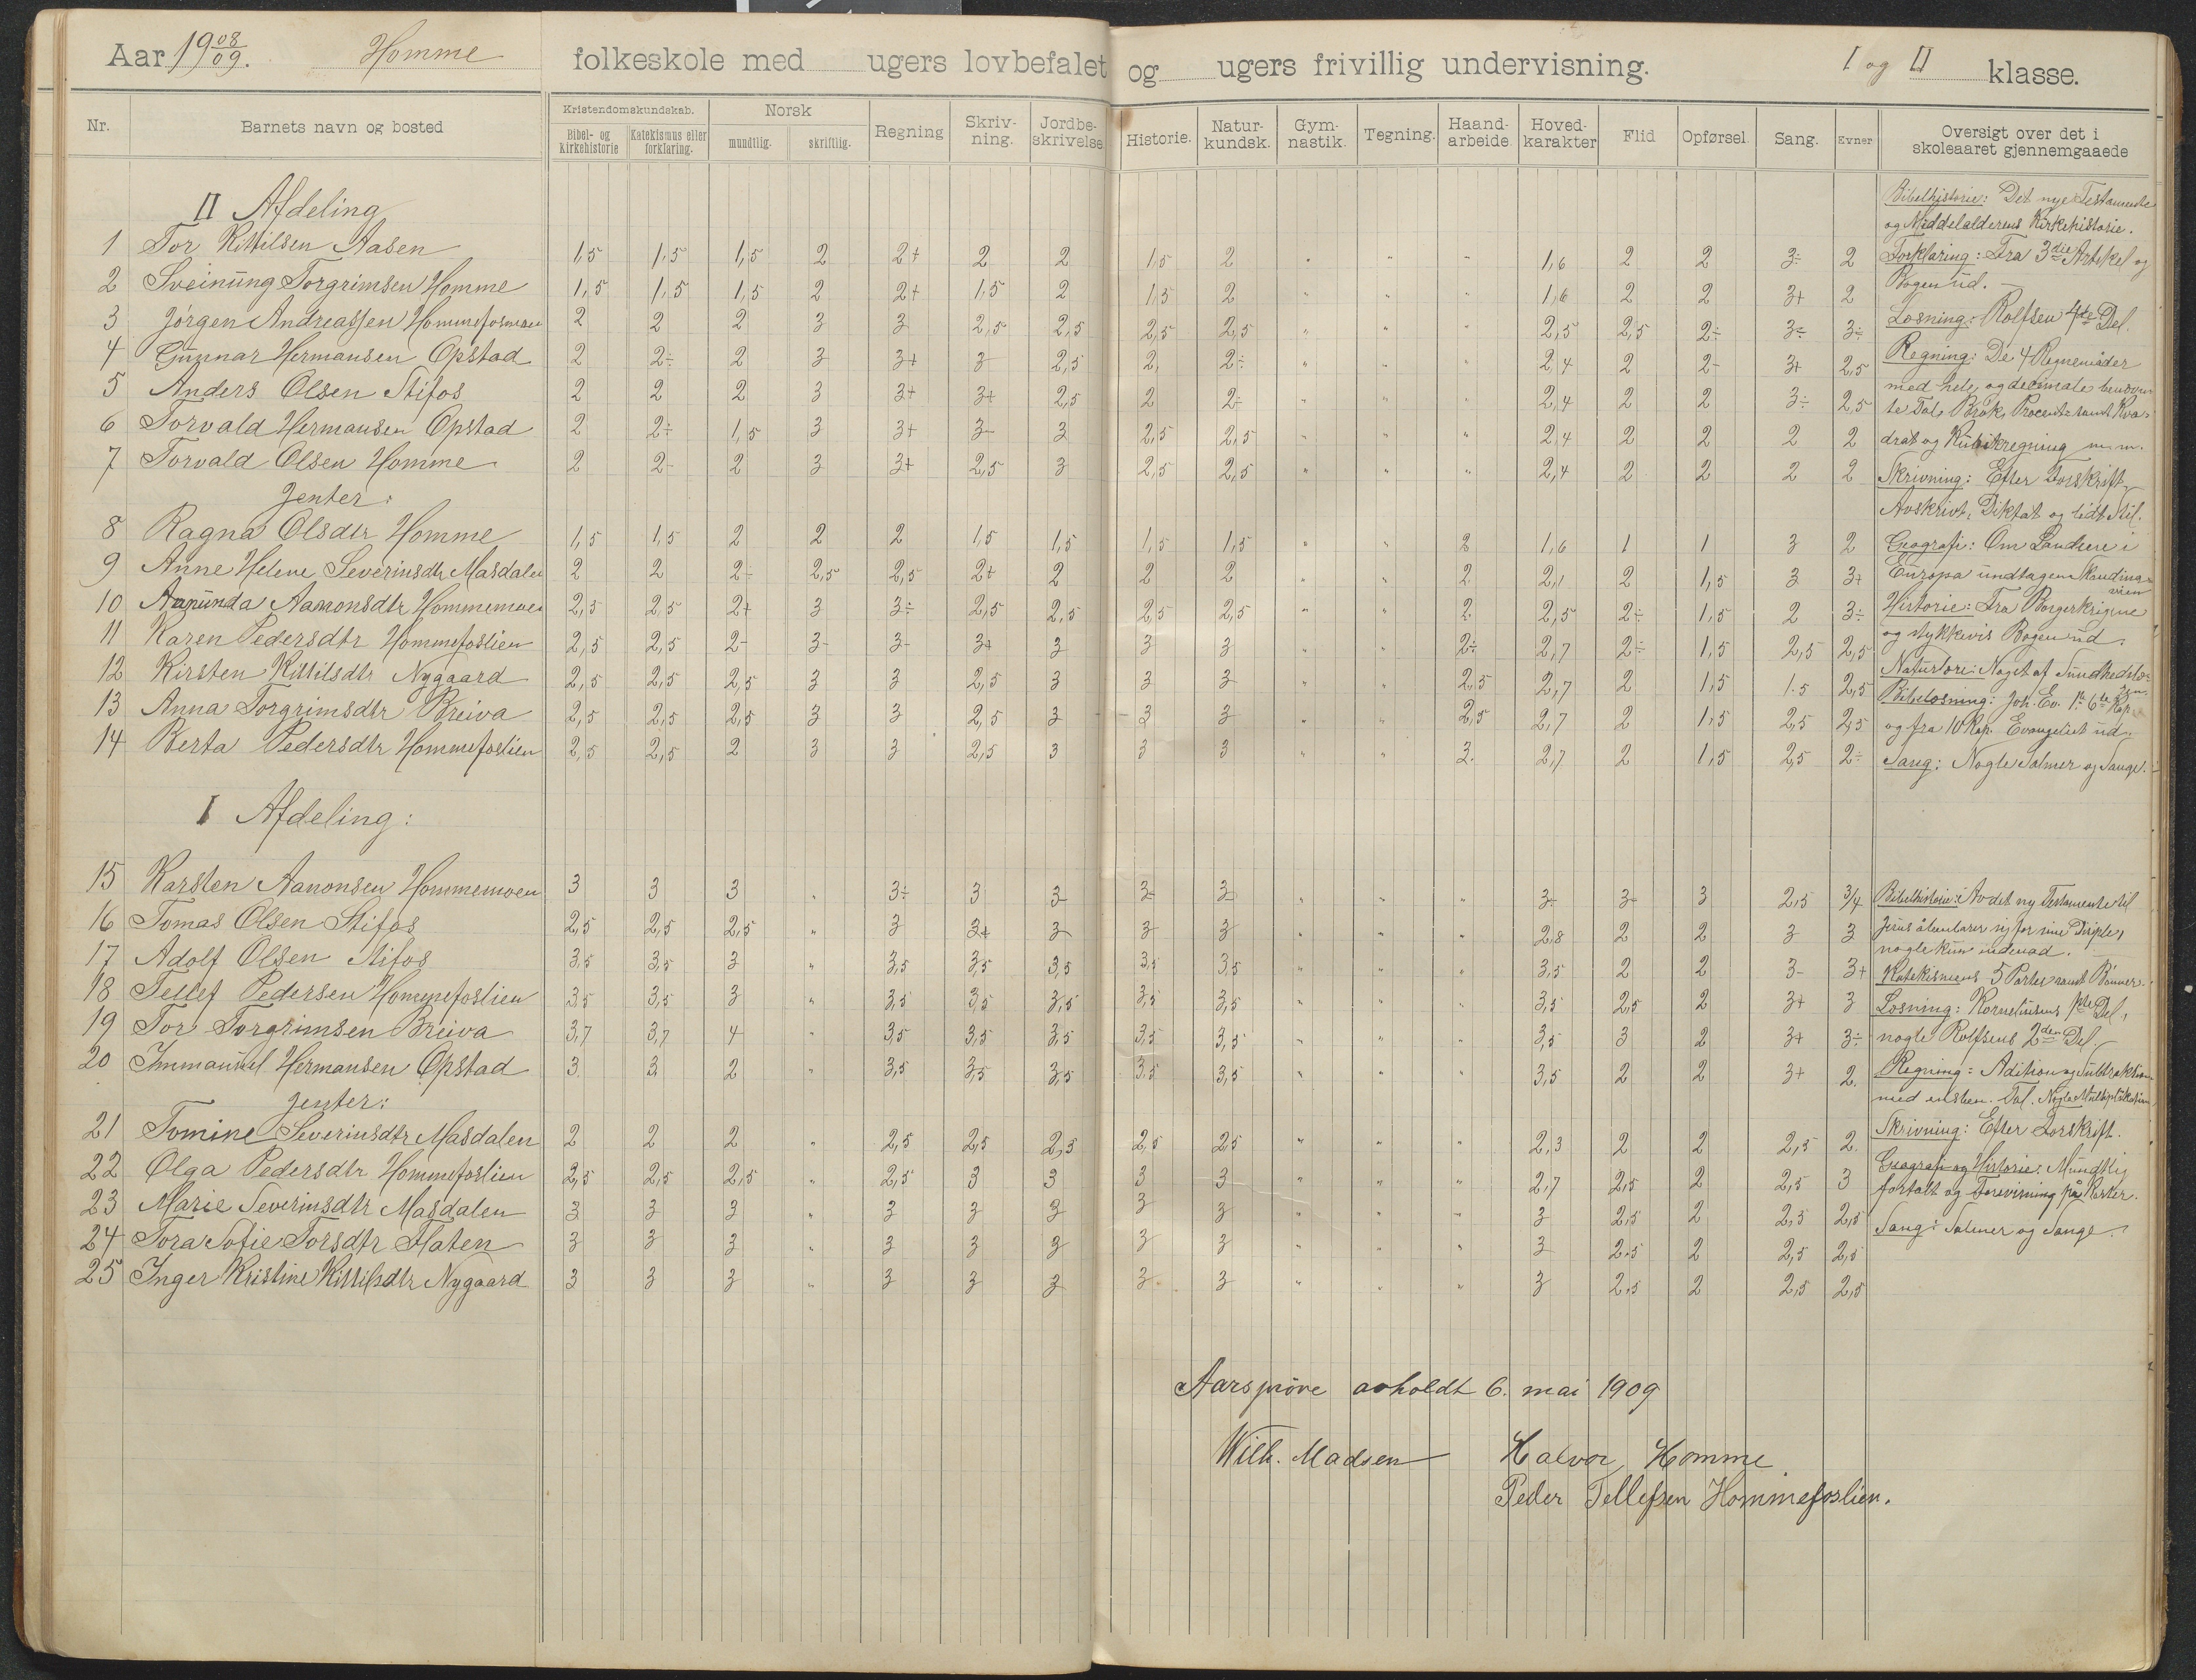 Aar 19 08/09. Homme folkeskole med ugers lovbefalet og ugers frivillig undervisning. I og II klasse.
Nr. Barnets navn og bosted Kristendomskundskab. Bibel- og kirkehistorie Katekismus eller forklaring. Norsk mundtlig. skriftlig. Regning Skriv-ning. Jordbe-skrivelse Historie. Natur-kundsk. Gym-nastik. Tegning. Haand-arbeide. Hoved-karakter Flid Opførsel. Sang. Evner Oversigt over det i skoleaaret gjennemgaaede
II Afdeling
1 Tor Kittilsen Aasen 1,5 1,5 1,5 2 2+ 2 2 1,5 2 " " " 1,6 2 2 3÷ 2
2 Sveinung Torgrimsen Homme 1,5 1,5 1,5 2 2+ 1,5 2 1,5 2 " " " 1,6 2 2 3+ 2
3 Jörgen Andreassen Hommefosmoen 2 2 2 3 3 2,5 2,5 2,5 2,5 " " " 2,5 2,5 2÷ 3÷ 3÷
4 Gunnar Hermansen Opstad 2 2÷ 2 3 3+ 3 2,5 2, 2÷ " " " 2,4 2 2- 3+ 2,5
5 Anders Olsen Stifos 2 2 2 3 3+ 3+ 2,5 2 2÷ " " " 2,4 2 2 3÷ 2,5
6 Torvald Hermansen Opstad 2 2÷ 1,5 3 3+ 3- 3 2,5 2,5 " " " 2,4 2 2 2 2
7 Torvald Olsen Homme 2 2- 2 3 3+ 2,5 3 2,5 2,5 " " " 2,4 2 2 2 2
Jenter:
8 Ragna Olsdtr Homme 1,5 1,5 2 2 2 1,5 1,5 1,5 1,5 " " 2 1,6 1 1 3 2
9 Anne Helene Severinsdtr Masdalen 2 2 2÷ 2,5 2,5 2+ 2 2 2 " " 2 2,1 2 1,5 3 3+
10 Aanunda Aanonsdtr Hommemoen 2,5 2,5 2+ 3 3÷ 2,5 2,5 2,5 2,5 " " 2 2,5 2÷ 1,5 2 3÷
11 Karen Pedersdtr Hommefoslien 2,5 2,5 2- 3- 3- 3+ 3 3 3 " " 2÷ 2,7 2÷ 1,5 2,5 2,5
12 Kirsten Kittilsdtr Nygaard 2,5 2,5 2,5 3 3 2,5 3 3 3 " " 2,5 2,7 2 1,5 1.5 2,5
13 Anna Torgrimsdtr Breiva 2,5 2,5 2,5 3 3 2,5 3 3 3 " " 2,5 2,7 2 1,5 2,5 2,5
14 Berta Pedersdtr Hommefoslien 2,5 2,5 2 3 3 2,5 3 3 3 " " 3. 2,7 2 1,5 2,5 2÷
Bibelhistorie: Det nye Testamente
og Middelalderens Kirkehistorie.
Forklaring: Fra 3die Artikel og
Bogen ud.
Læsning: Rolfsen 4de Del.
Regning: De 4 Regnemåder
med hele og decimale benævn-
te Tal, Brök, Procent samt Kva-
drat og Kubikregning m.m.
Skrivning: Efter Forskrift,
Avskrivt, Diktat og lidt Stil.
Geografi: Om Landene i
Europa undtagen Skandina-
vien
Historie: Fra Borgerkrigene
og stykkevis Bogen ud.
Naturlære: Noget af Sundhedslæ-
ren.
Bibellæsning: Joh. Ev. 1ste 6te Kap.
og fra 10 Kap. Evangeliet ud.
Sang: Nogle Salmer og Sange.
I Afdeling:
15 Karsten Aanonsen Hommemoen 3 3 3 " 3÷ 3 3 3- 3 " " " 3÷ 3- 3 2,5 3/4
16 Tomas Olsen Stifos 2,5 2,5 2,5 " 3 3+ 3 3 3 " " " 2,8 2 2 3 3
17 Adolf Olsen Stifos 3,5 3,5 3 " 3,5 3,5 3,5 3,5 3,5 " " " 3,5 2 2 3- 3+
18 Tellef Pedersen Hommefoslien 3,5 3,5 3 " 3,5 3,5 3,5 3,5 3,5 " " " 3,5 2,5 2 3+ 3
19 Tor Torgrimsen Breiva 3,7 3,7 4 " 3,5 3,5 3,5 3,5 3,5 " " " 3,5 3 2 3+ 3÷
20 Immanuel Hermansen Opstad 3 3 2 " 3,5 3,5 3,5 3,5 3,5 " " " 3,5 2 2 3+ 2.
Jenter:
21 Tomine Severinsdtr Masdalen 2 2 2 " 2,5 2,5 2,5 2,5 2,5 " " " 2,3 2 2 2,5 2.
22 Olga Pedersdtr Hommefoslien 2,5 2,5 2,5 " 2,5 3 3 3 3 " " " 2,7 2,5 2 2,5 3
23 Marie Severinsdtr Masdalen 3 3 3 " 3 3 3 3 3 " " " 3 2,5 2 2,5 2,5
24 Tora Sofie Torsdtr Flaten 3 3 3 " 3 3 3 3 3 " " " 3 2,5 2 2,5 2,5
25 Inger Kristine Kittilsdtr Nygaard 3 3 3 " 3 3 3 3 3 " " " 3 2,5 2 2,5 2,5
Bibelhistorie: Av det ny Testamente til
Jesus åbenbarer sig for sine Disiple,
nogle kun indenad.
Katekismens 5 Parter samt Bönner.
Læsning: Korneliusens 1ste Del,
nogle Rolfsens 2den Del.
Regning: Adition og Subtraktion
med ensben. Tal. Nogle Multiplikation,
Skrivning: Efter Forskrift.
Geografi og Historie: Mundtlig
fortalt og Forevisning på Karter.
Sang: Salmer og Sange.
Aarsprøve avholdt 6. mai 1909
Wilh. Madsen Halvor Homme
Peder Tellefsen Hommefoslien.